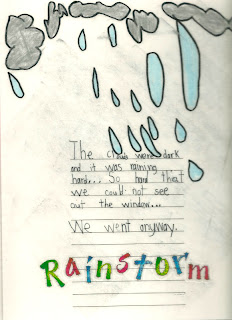 The clouds were dark
and it was raining
hard... So hard that
we could not see
out the window...
We went anyway.
Rainstorm